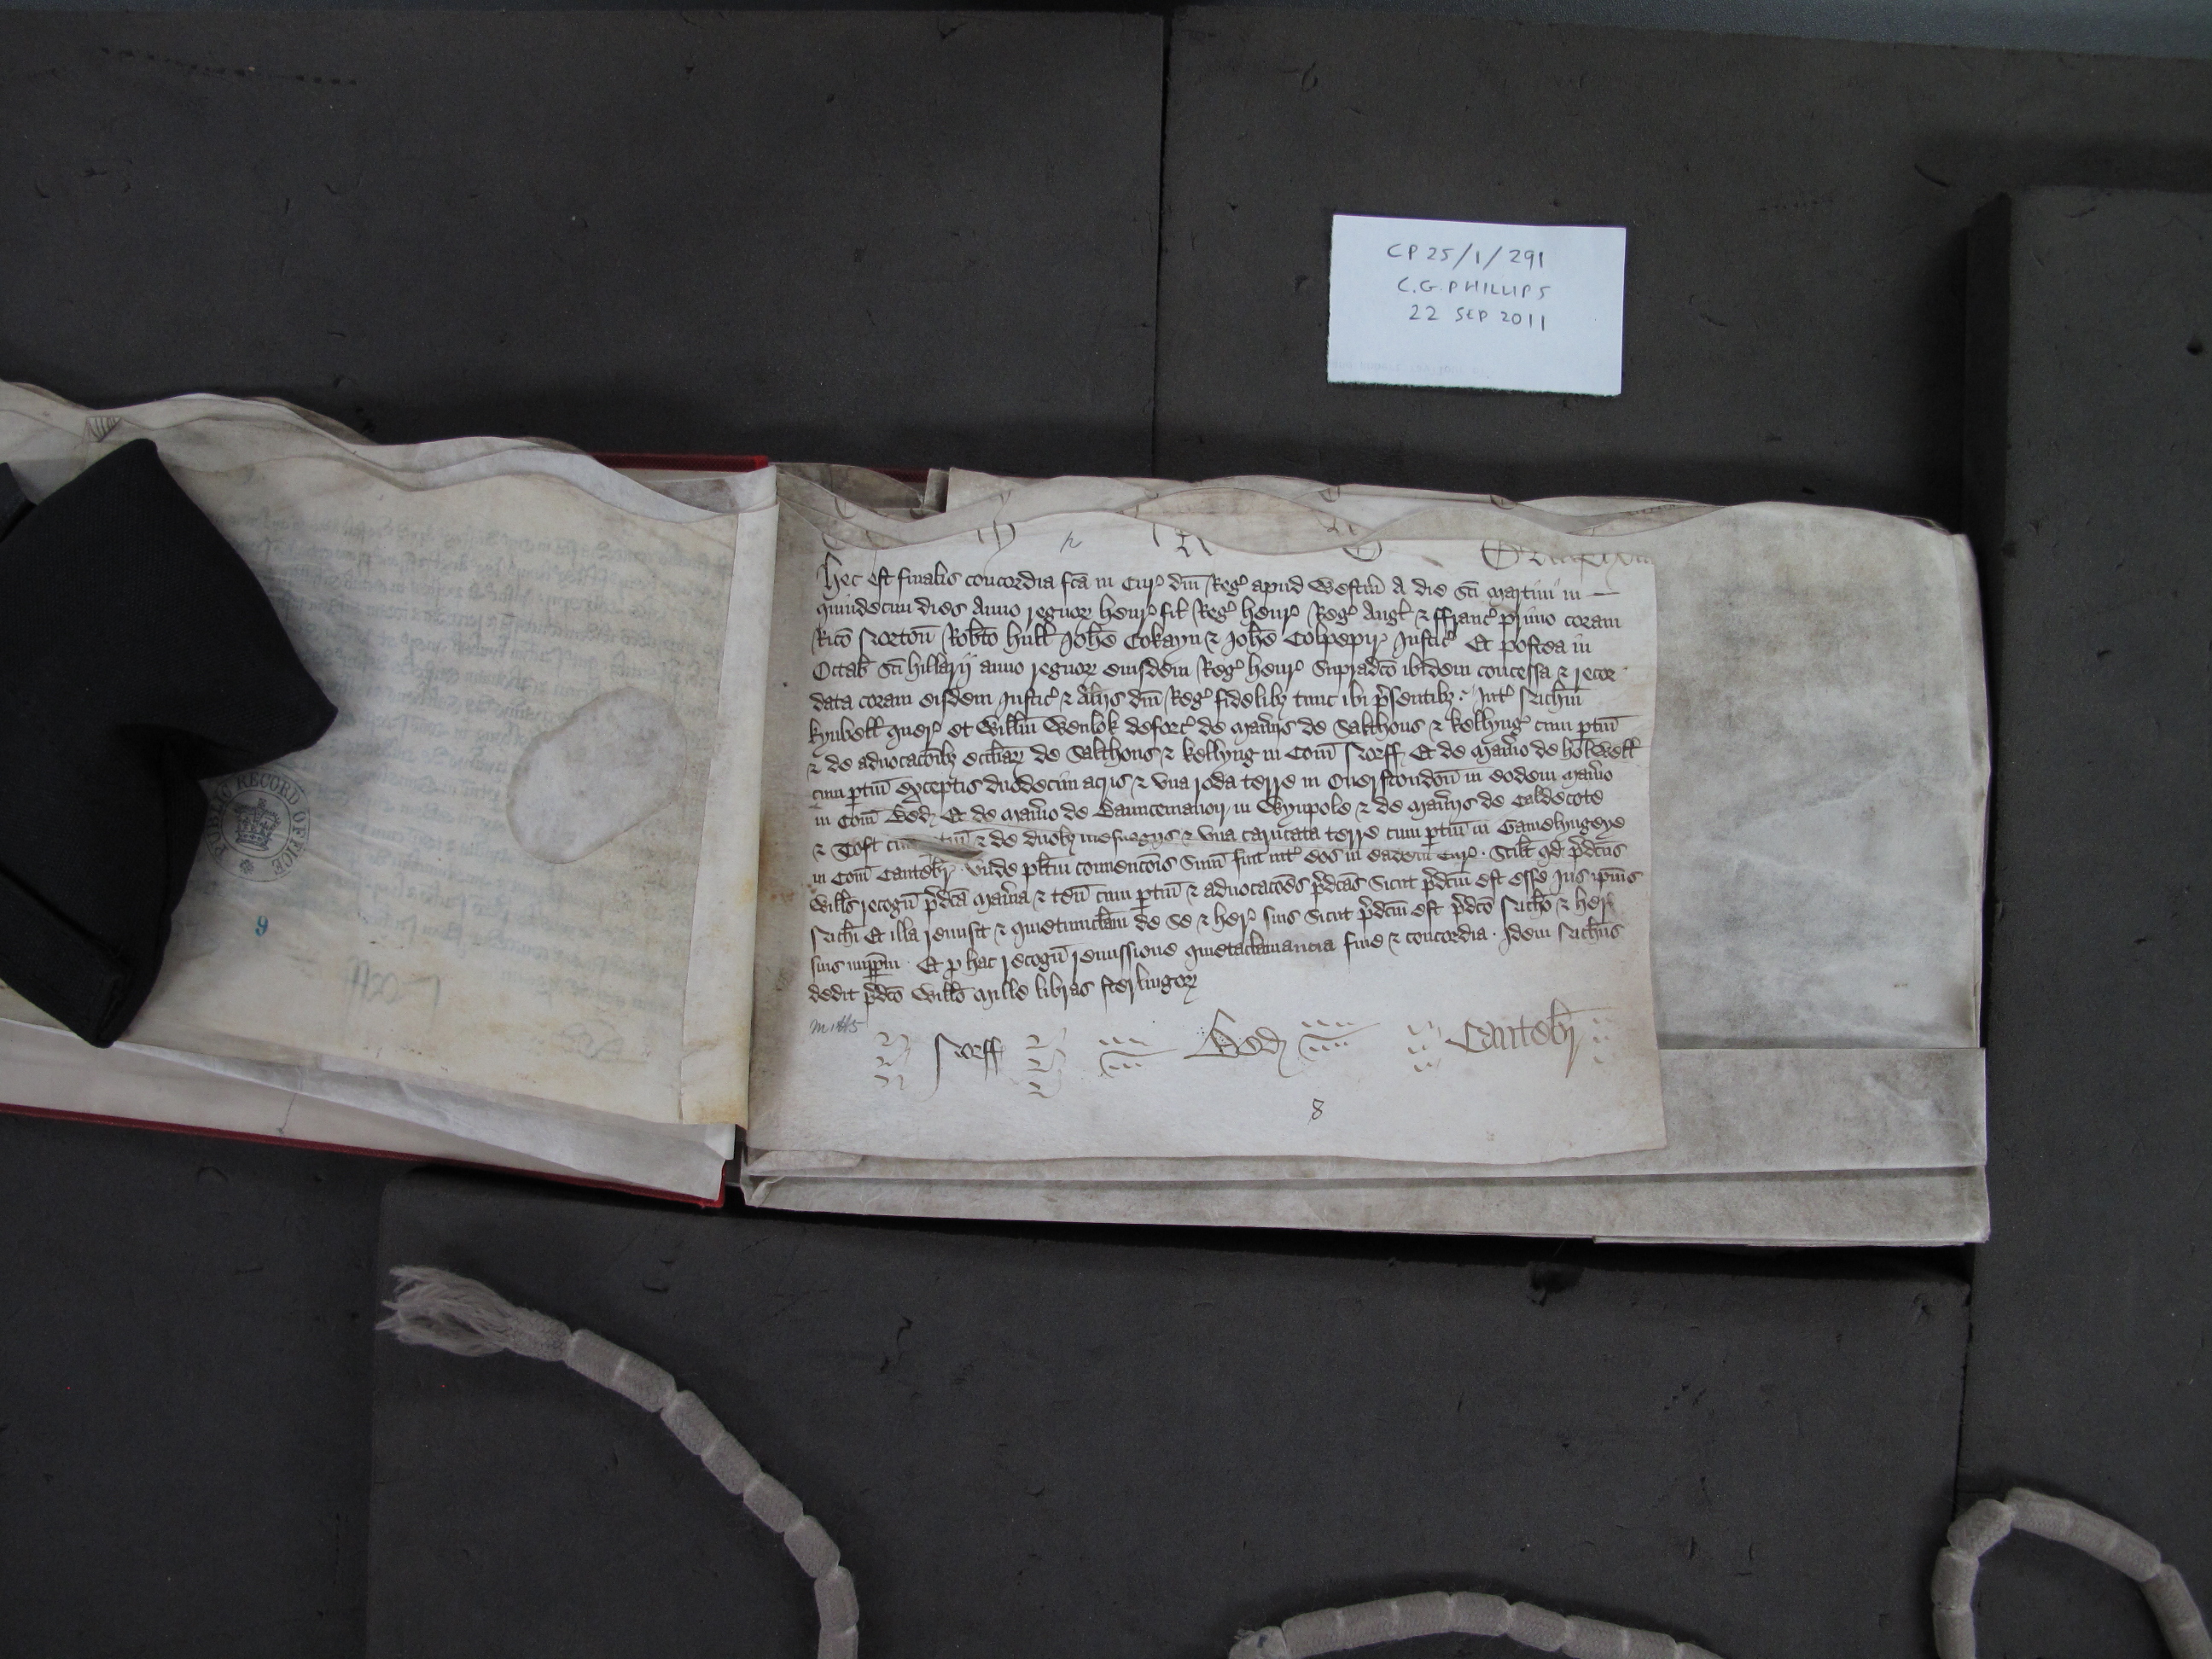 CP 25/1/291
C.G. PHILLIPS
22 SEP 2011
Hec est finalis concordia fcã in Cur' dñi Reg' apud Westm̃ A die Sci Martini in
quindecim dies Anno regnor' Henr' fil' Reg' Henr' Reg' Angl' & ffranc' primo coram
Rico Norton Robto Hull Johe Cokayn & Johe Colpepir Justic' Et postea in
Octab' Sci Hillarij anno regnor' eiusdem Reg' Henr' Supradco ibidem concessa & recor
data coram eisdem Justic' & Alijs dñi Reg' fidelib; tunc ibi p'sentib; Int'
kynbell quer' et Willm Wenlok deforc' de Mañijs de Salthous & kellyng' cum ptiñ
& de aduocacoib; eccliar' de Salthous & kellyng in Com̃ Norff Et de Mañio de holwell
cum ptiñ exceptis duodecim acris & vna roda terre in Ouerstondon in eodem Mañio
in Com̃ Bed Et de Mañio de in Wynpole & de Mañijs de Caldecote
& Toft & de duob; mesuagijs & vna carucata terre cum ptiñ in Gamelyngeye
in Com̃ Cantebr' vnde plitm conuencois Sum̃ fuit int' eos in eadem Cur' Scilt qd p'dcus
Wills recogñ p'dca Mañia & teñ cum ptiñ & aduocacoes p'dcas Sicut p'dcm est esse Jus ipius
Et illa remisit & quietumclam' de Se & her' suis Sicut p'dcm est p'dco & her'
suis imppm Et p hac recogñ remissione quietaclamancia fine & concordia Idem
dedit p'dco Willo Mille libras sterlingor'
Norff Bed Cantebr'
8
PUBLIC RECORD OFFICE
9